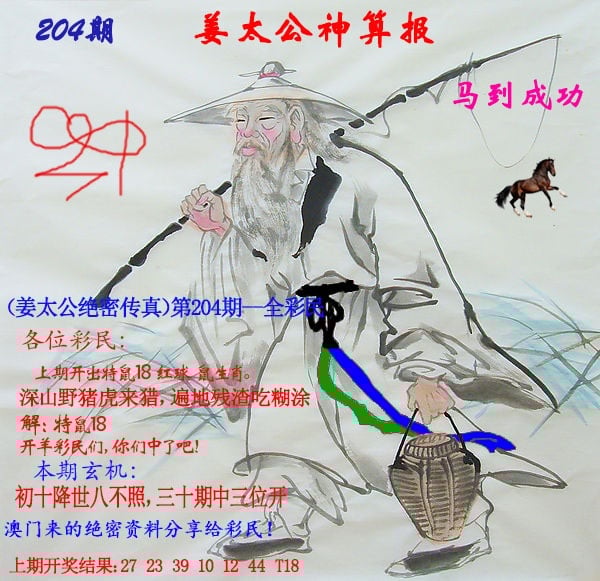 204期 姜太公神算报
马到成功
(姜太公绝密传真)第204期—全彩民
各位彩民:
上期开出特鼠18 红球 鼠生肖。
深山野猪虎来猎,遍地残渣吃糊涂
解:特鼠18
开羊彩民们,你们中了吧!
本期玄机:
初十降世八不照,三十期中三位开
澳门来的绝密资料分享给彩民!
上期开奖结果:27 23 39 10 12 44 T18